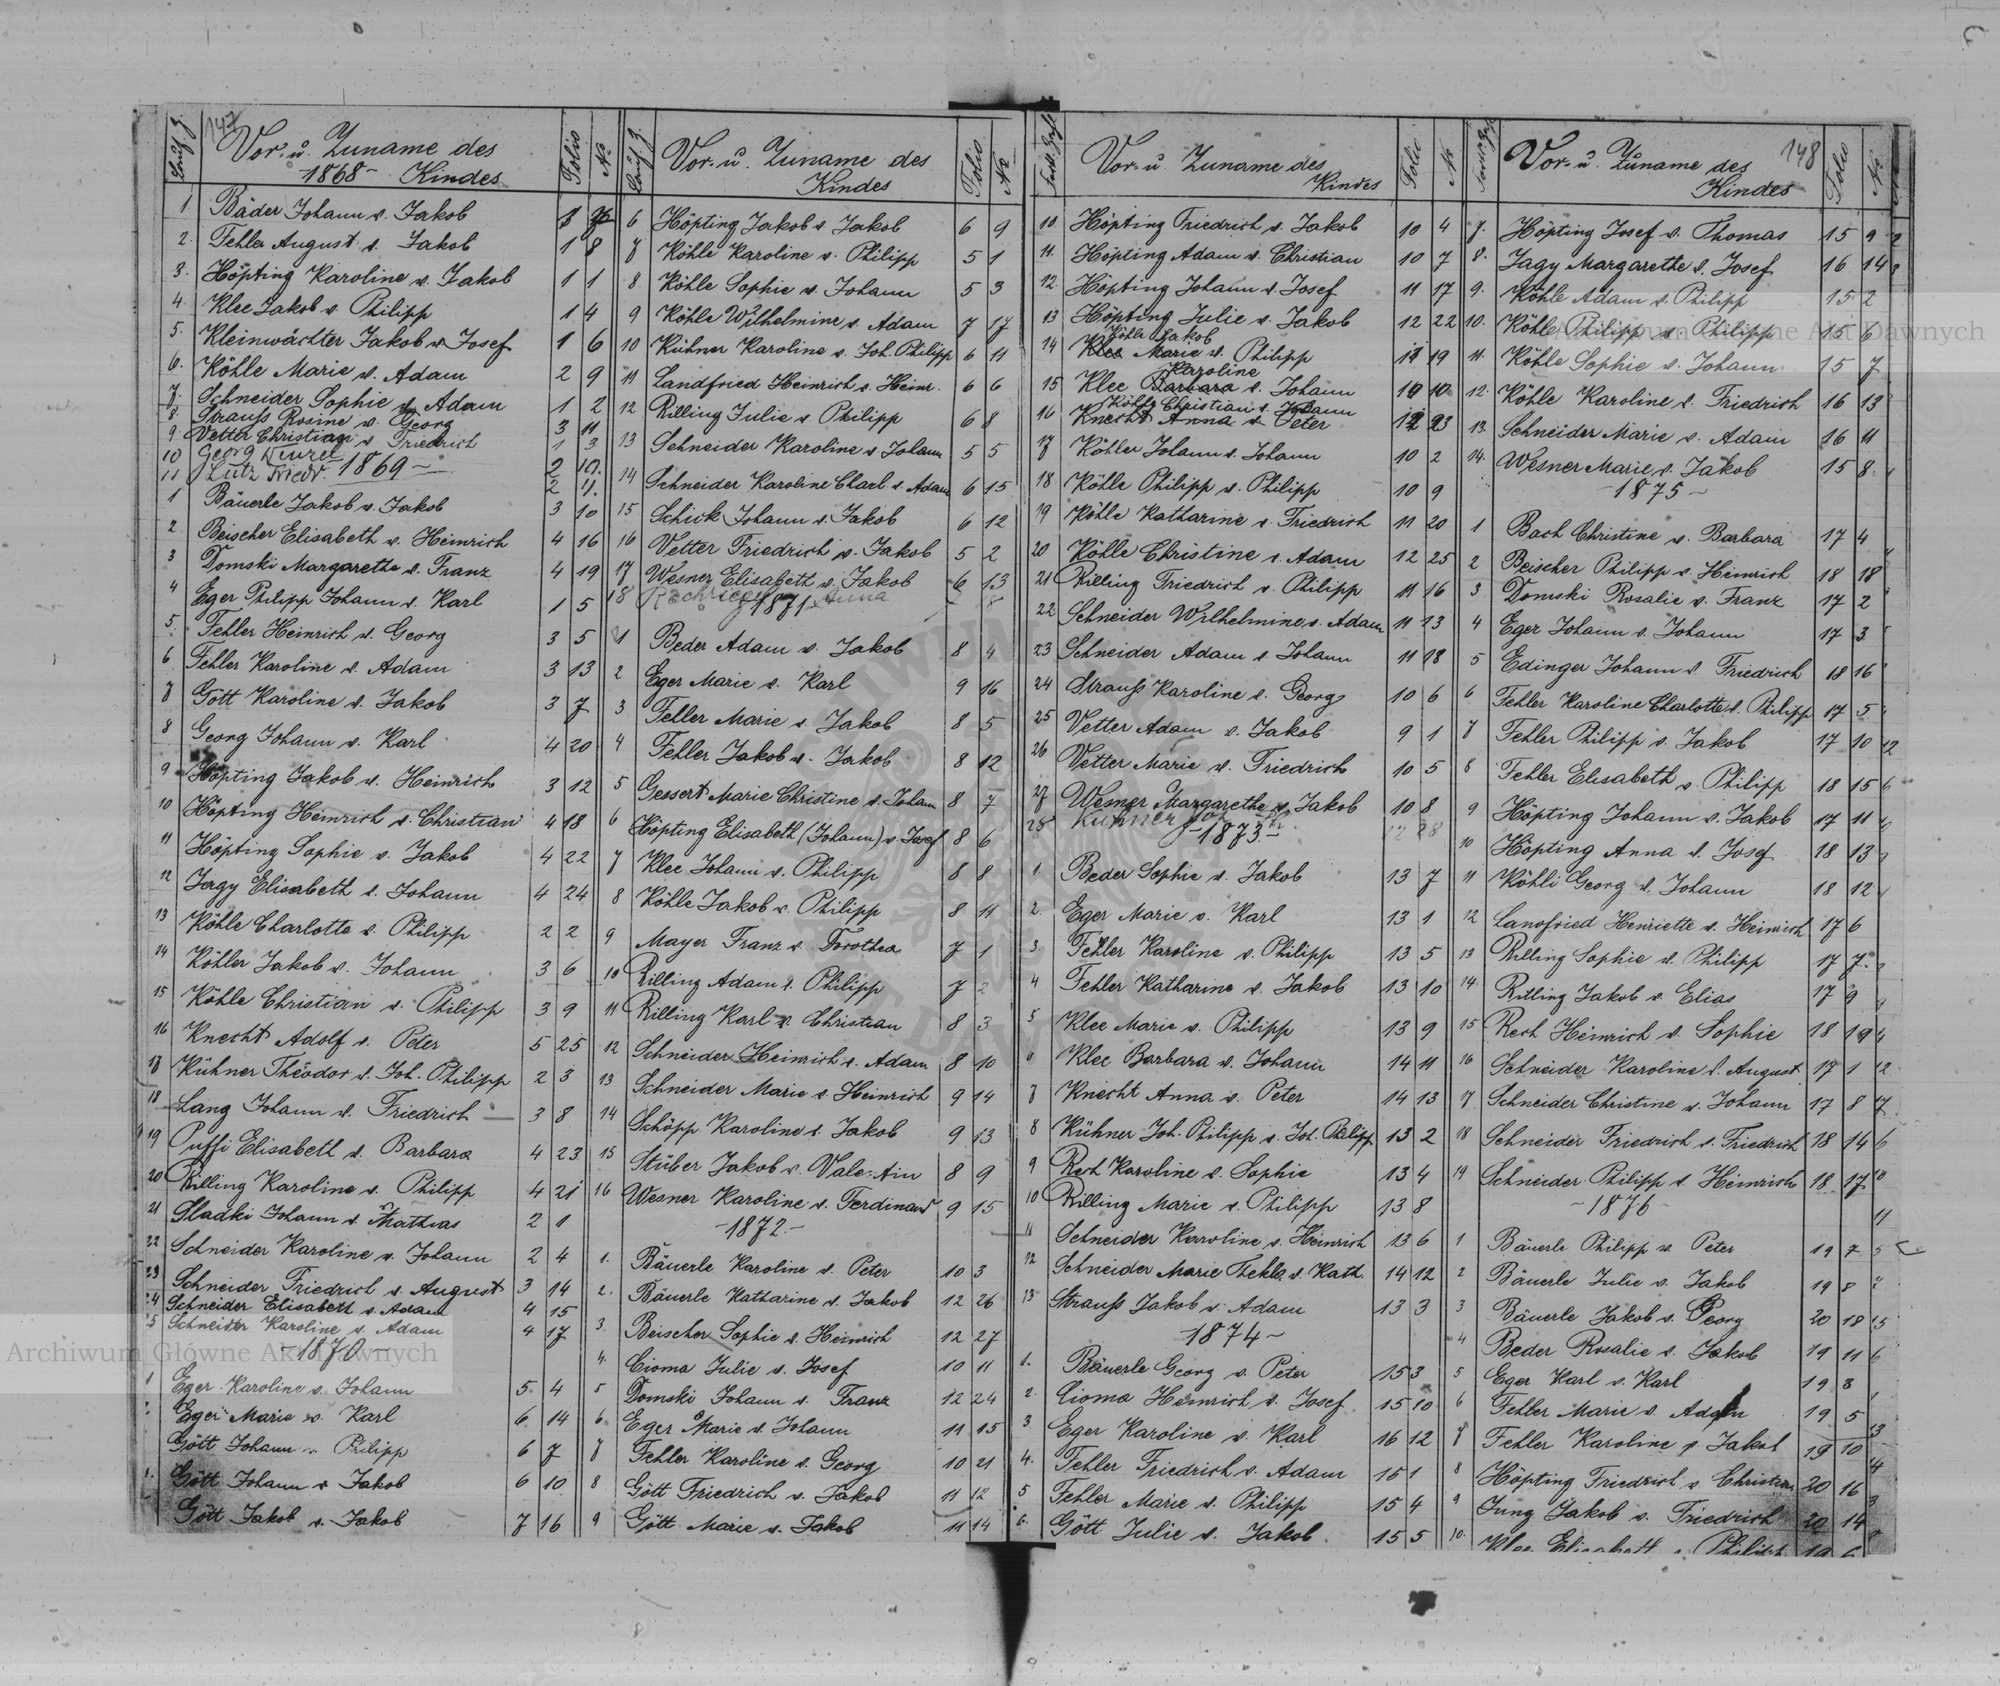 147
Vor. u. Zuname des
1868 - Kindes
Folio
No
1 Bäder Johann v. Jakob 1
2. Fehler August v. Jakob 1 8
3. Höpting Karoline v. Jakob 1 1
4. Klee Jakob v. Philipp 1 4
5. Kleinwächter Jakob v. Josef 1 6
6. Köhle Marie v. Adam 2 9
7. Schneider Sophie v. Adam 1 2
8. Strauß Rosine v. Georg 3 11
9 Vetter Christian v Friedrich 1 3
10 Georg 2 10.
11 Lutz Friedr. 2 11.
1869 -
1 Bäuerle Jakob v. Jakob 3 10
2 Beischer Elisabeth v. Heinrich 4 16
3 Domski Margarethe v. Franz 4 19
4 Eger Philipp Johann v. Karl 1 5
5. Fehler Heinrich v. Georg 3 5
6 Fehler Karoline v. Adam 3 13
7 Gött Karoline v. Jakob 3 7
8 Georg Johann v. Karl 4 20
9 Höpting Jakob v. Heinrich 3 12
10 Höpting Heinrich v. Christian 4 18
11 Höpting Sophie v. Jakob 4 22
12 Jagy Elisabeth v. Johann 4 24
13 Köhle Charlotte v. Philipp 2 2
14 Köhler Jakob v. Johann 3 6
15 Köhle Christian v. Philipp 3 9
16 Knecht Adolf v. Peter 5 25
17 Kühner Theodor v. Joh. Philipp 2 3
18 Lang Johann v. Friedrich 3 8
19 Puffi Elisabeth v. Barbara 4 23
20 Rilling Karoline v. Philipp 4 21
21 Sladki Johann v. Mathias 2 1
22 Schneider Karoline v. Johann 2 4
23 Schneider Friedrich v. August 3 14
24 Schneider Elisabeth v. Adam 4 15
25 Schneider Karoline v. Adam 4 17
- 1870 -
1 Eger Karoline v. Johann 5 4
2. Eger Marie v. Karl 6 14
Gött Johann v. Philipp 6 7
Gött Johann v Jakob 6 10
Gött Jakob v. Jakob 7 16
Vor. u. Zuname des
Kindes
Folio
No
6 Höpting Jakob v. Jakob 6 9
7 Köhle Karoline v. Philipp 5 1
8 Köhle Sophie v. Johann 5 3
9 Köhle Wilhelmine v. Adam 7 17
10 Kühner Karoline v. Joh. Philipp 6 11
11 Landfried Heinrich v. Heinr. 6 6
12 Rilling Julie v Philipp 6 8
13 Schneider Karoline v Johann 5 5
14 Schneider Karoline Charl. v Adam 6 15
15 Schick Johann v. Jakob 6 12
16 Vetter Friedrich v. Jakob 5 2
17 Wesner Elisabeth v. Jakob 6 13
18 Anna
1871
1 Beder Adam v. Jakob 8 4
2 Eger Marie v. Karl 9 16
3 Fehler Marie v. Jakob 8 5
4 Fehler Jakob v. Jakob 8 12
5 Gessert Marie Christine v. Johann 8 7
6 Höpting Elisabeth (Johann) v. Josef 8 6
7 Klee Johann v. Philipp 8 8
8 Köhle Jakob v. Philipp 8 11
9 Mayer Franz v. Dorothea 7 1
10 Rilling Adam v. Philipp 7 2
11 Rilling Karl v Christian 8 3
12 Schneider Heinrich v. Adam 8 10
13 Schneider Marie v. Heinrich 9 14
14 Schöpp Karoline v. Jakob 9 13
15 Stüber Jakob v. Valentin 8 9
16 Wesner Karoline v. Ferdinand 9 15
-1872-
1. Bäuerle Karoline v. Peter 10 3
2. Bäuerle Katharine v. Jakob 12 26
3. Beischer Sophie v. Heinrich 12 27
4. Cioma Julie v. Josef 10 11
5 Domski Johann v. Franz 12 24
6 Eger Marie v. Johann 11 15
7 Fehler Karoline v. Georg 10 21
8 Gött Friedrich v. Jakob 11 12
9 Gött Marie v. Jakob 11 14
Vor. u. Zuname des
Kindes
Folio
No
10 Höpting Friedrich v. Jakob 10 4
11. Höpting Adam v. Christian 10 7
12. Höpting Johann v. Josef 11 17
13 Höpting Julie v. Jakob 12 22
Köhle Jakob
14 Klee Marie v. Philipp 11 19
Karoline
15 Klee Barbara v. Johann 10 10
Köhle Christian v. Johann
16 Knecht Anna v Peter 12 23
17 Köhler Johann v. Johann 10 2
18 Köhle Philipp v. Philipp 10 9
19 Köhle Katharine v. Friedrich 11 20
20 Köhle Christine v. Adam 12 25
21 Rilling Friedrich v. Philipp 11 16
22 Schneider Wilhelmine v. Adam 11 13
23 Schneider Adam v Johann 11 18
24 Strauß Karoline v. Georg 10 6
25 Vetter Adam v. Jakob 9 1
26 Vetter Marie v. Friedrich 10 5
27 Wesner Margarethe v. Jakob 10 8
28 Kühner 12 28
-1873-
1. Beder Sophie v. Jakob 13 7
2. Eger Marie v. Karl 13 1
3. Fehler Karoline v. Philipp 13 5
4 Fehler Katharine v. Jakob 13 10
5 Klee Marie v. Philipp 13 9
6 Klee Barbara v. Johann 14 11
7 Knecht Anna v. Peter 14 13
8 Kühner Joh. Philipp v. Joh. Philipp 13 2
9 Rech Karoline v. Sophie 13 4
10 Rilling Marie v. Philipp 13 8
11 Schneider Karoline v. Heinrich 13 6
12 Schneider Marie Thekla v. Kath. 14 12
13 Strauß Jakob v. Adam 13 3
1874-
1. Bäuerle Georg v. Peter 15 3
2. Cioma Heinrich v. Josef 15 10
3 Eger Karoline v. Karl 16 12
4. Fehler Friedrich v. Adam 15 1
5 Fehler Marie v. Philipp 15 4
6. Gött Julie v. Jakob 15 5
148
Vor. u. Zuname des
Kindes
Folio
No
7. Höpting Josef v. Thomas 15 9
8. Jagy Margarethe v. Josef 16 14
9. Köhle Adam v. Philipp 15 2
10. Köhle Philipp v. Philipp 15 6
11. Köhle Sophie v. Johann 15 7
12. Köhle Karoline v. Friedrich 16 13
13. Schneider Marie v. Adam 16 11
14. Wesner Marie v. Jakob 15 8
-1875-
1 Bach Christine v. Barbara 17 4
2 Beischer Philipp v. Heinrich 18 18
3 Domski Rosalie v. Franz 17 2
4 Eger Johann v. Johann 17 3
5 Edinger Johann v. Friedrich 18 16
6 Fehler Karoline Charlotte v. Philipp 17 5
7 Fehler Philipp v. Jakob 17 10
8 Fehler Elisabeth v. Philipp 18 15
9 Höpting Johann v. Jakob 17 11
10 Höpting Anna v. Josef 18 13
11 Köhli Georg v. Johann 18 12
12 Landfried Henriette v. Heinrich 17 6
13 Rilling Sophie v. Philipp 17 7
14. Rilling Jakob v. Elias 17 9
15 Rech Heinrich v. Sophie 18 19
16 Schneider Karoline v. August 17 1
17 Schneider Christine v. Johann 17 8
18 Schneider Friedrich v. Friedrich 18 14
19 Schneider Philipp v. Heinrich 18 17
- 1876 -
1 Bäuerle Philipp v. Peter 19 7
2 Bäuerle Julie v. Jakob 19 8
3 Bäuerle Jakob v. Georg 20 18
4 Beder Rosalie v. Jakob 19 11
5 Eger Karl v. Karl 19 3
6 Fehler Marie v. Adam 19 5
7 Fehler Karoline v Jakob 19 10
8 Höpting Friedrich v Christian 20 16
9 Jung Jakob v. Friedrich 20 14
10. Klee Elisabeth v Philipp 19 6
Archiwum Główne Akt Dawnych
Archiwum Główne Akt Dawnych